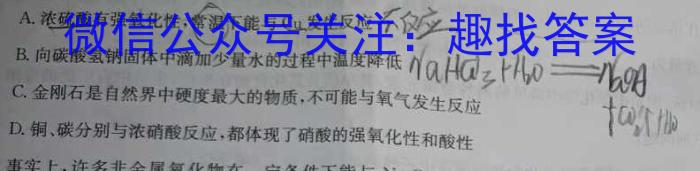 A. 浓硫酸有强氧化性，常温下能与Cu发生反应 不反应
微信公众号关注：趣找答案
B. 向碳酸氢钠固体中滴加少量水的过程中温度降低
C. 金刚石是自然界中硬度最大的物质，不可能与氧气发生反应
D. 铜、碳分别与浓硝酸反应，都体现了硝酸的强氧化性和酸性
事实上，许多非金属氧化物在一定条件下能与